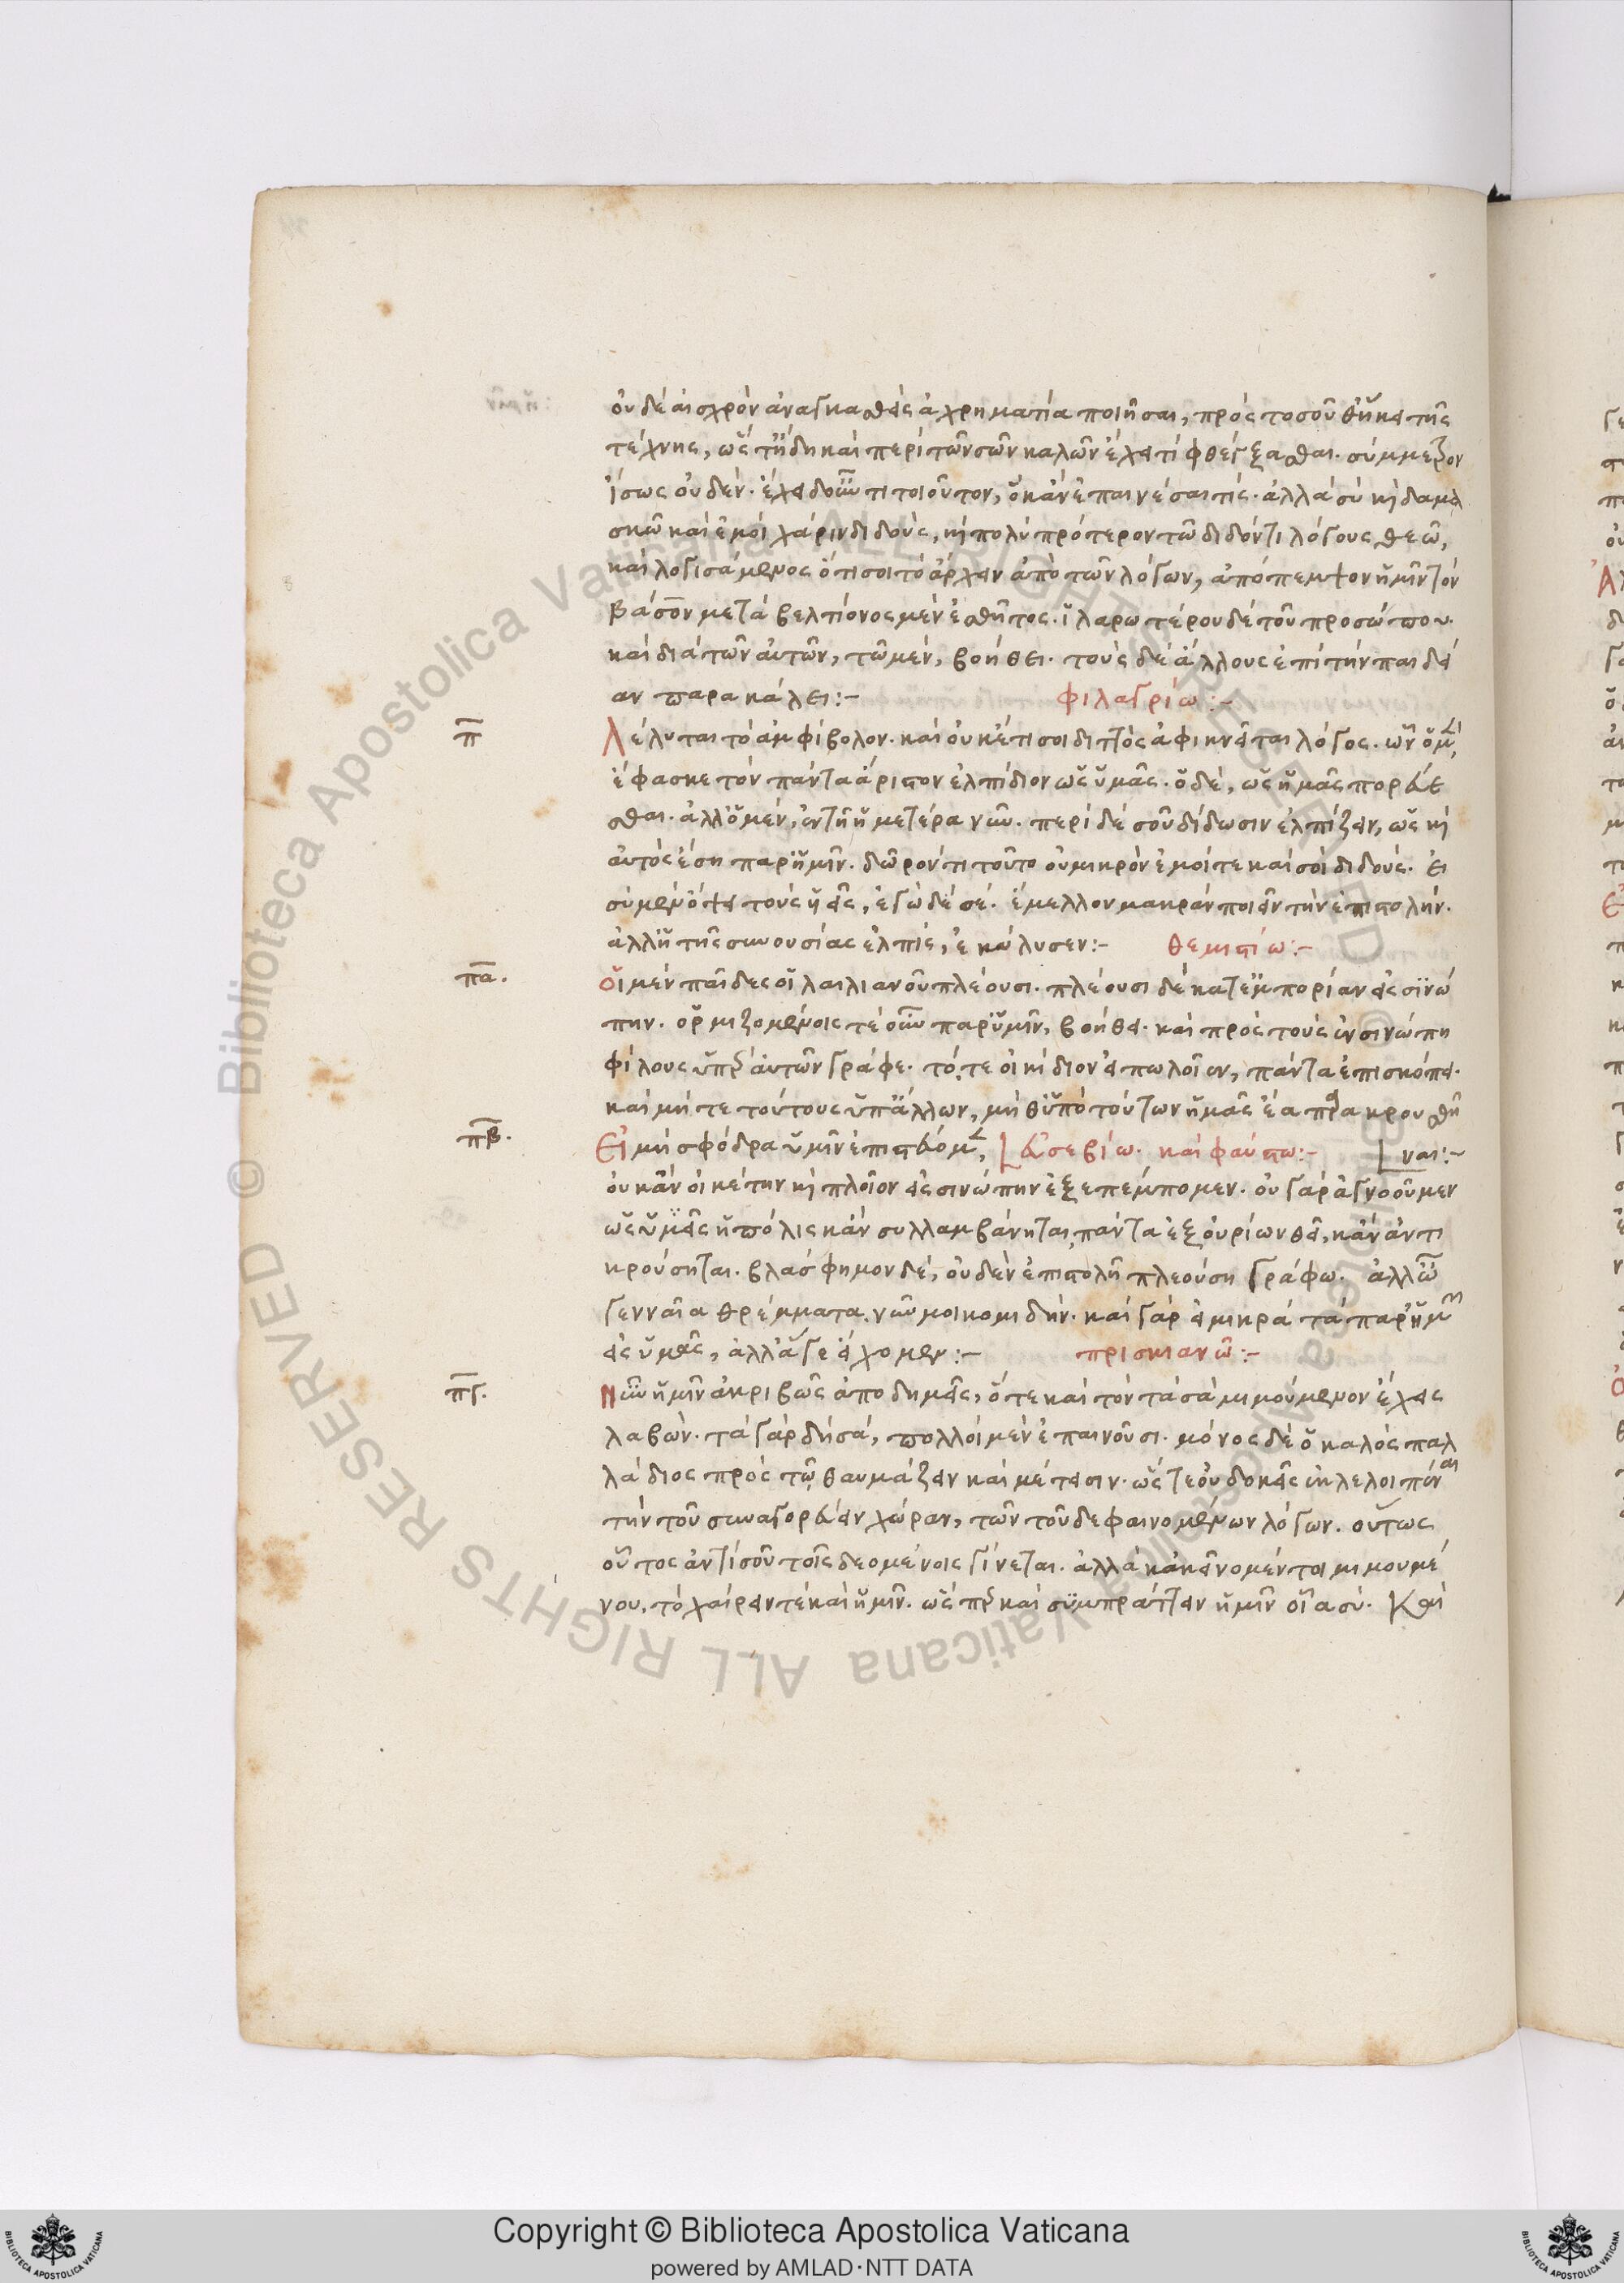 οὐδὲ αἰσχρὸν ἀναγκασθεὶς ἀχρηματία ποιῆσαι, πρὸς τοσοῦθ ἥκει τῆς
τέχνης, ὡς τῆδη καὶ περὶ τῶν σῶν καλῶν ἔχει τί φθέγξασθαι. σύμμετρον
ἴσως οὐδέν. ἔχει δοὖν τι τοιοῦτον, ὃ κἂν ἐπαινέσαι τίς. ἀλλὰ σὺ κὶ δαμα
σκῶ καὶ ἐμοὶ χάριν διδοὺς, κὶ πολὺ πρότερον τῶ διδόντι λόγους θεῶ,
καὶ λογισάμενος ὅτι σοι τὸ ἄρχειν ἀπὸ τῶν λόγων, ἀπόπεμψον ἡμῖν τὸν
βάσσον μετὰ βελτίονος μὲν ἐσθῆτος. ἱλαρωτέρου δὲ τοῦ προσώπου.
καὶ διὰ τῶν αὐτῶν, τῶ μὲν, βοήθει. τοὺς δὲ ἄλλους ἐπὶ τὴν παιδεί
αν παρακάλει:-
φιλαγρίω:-
π
Λέλυται τὸ ἀμφίβολον. καὶ οὐκέτι σοι διττὸς ἀφικνεῖται λόγος. ὧν ὁ μὲν,
ἔφασκε τὸν πάντα ἄριστον ἐλπίδιον ὡς ὑμᾶς. ὁ δὲ, ὡς ἡμᾶς πορεύε
σθαι. ἀλλ ὁ μὲν, ἐν τῆ ἡμετέρα νῦν. περὶ δὲ σοῦ δίδωσιν ἐλπίζειν, ὡς κὶ
αὐτὸς ἔση παρ ἡμῖν. δῶρόν τι τοῦτο οὐ μικρὸν ἐμοί τε καὶ σοὶ διδούς. ει
σὺ μὲν ὄψει τοὺς υἱεῖς, ἐγὼ δὲ σέ. ἔμελλον μακρὰν ποιεῖν τὴν ἐπιστολήν.
ἀλλ ἡ τῆς συνουσίας ἐλπὶς, ἐκώλυσεν:-
θεμιστίω:-
πα.
οἱ μὲν παῖδες οἱ λαιλιανοῦ πλέουσι. πλέουσι δὲ κατ ἐμπορίαν εἰς σινώ
πην. ὁρμιζομένοις τὲ οὖν παρ ὑμῖν, βοήθει. καὶ πρὸς τοὺς ἐν σινώπη
φίλους ὑπὲρ αὐτῶν γράφε. τό, τε οἰκίδιον εἰ πωλοῖεν, πάντα ἐπισκόπει.
καὶ μήτε τούτους ὑπ ἄλλων, μὴ θ ὑπὸ τούτων ἡμᾶς ἔα παρακρουσθῆ
ναι:-
πβ.
Εἰ μὴ σφόδρα ὑμῖν ἐπιστεύομεν,
εὐσεβίω. καὶ φαύστω:-
οὐκ ἂν οἰκέτην κὶ πλοῖον εἰς σινώπην ἐξεπέμπομεν. οὐ γὰρ ἀγνοοῦμεν
ὡς ὑμεῖς ἡ πόλις κἂν συλλαμβάνηται, πάντα ἐξ οὐρίων θεῖ, κἂν ἀντι
κρούσηται. βλάσφημον δὲ, οὐδὲν ἐπιστολῆ πλεούση γράφω. ἀλλ ὦ
γενναῖα θρέμματα νῦν μοι κομιδήν. καὶ γὰρ εἰ μικρὰ τὰ παρ ἡμῶν
εἰς ὑμᾶς, ἀλλ ἅ γε εἴχομεν:-
πρισκιανῶ:-
πγ.
Νῦν ἡμῖν ἀκριβῶς ἀποδημεῖς, ὅτε καὶ τὸν τὰ σὰ μιμούμενον ἔχεις
λαβών. τὰ γὰρ δὴ σὰ, πολλοὶ μὲν ἐπαινοῦσι. μόνος δὲ ὁ καλὸς παλ
λάδιος πρὸς τῶ θαυμάζειν καὶ μέτεισιν. ὥστε οὐ δοκεῖς ἐκλελοιπέναι
τὴν τοῦ συναγορεύειν χώραν, τῶν τοῦδε φαινομένων λόγων. οὕτως
οὗτος ἀντὶ σοῦ τοῖς δεομένοις γίνεται. ἀλλὰ κἀκεῖνο μέντοι μιμουμέ
νου, τὸ χαίρειν τὲ καὶ ἡμῖν. ὥσπερ καὶ συμπράττειν ἡμῖν οἷα σύ. Καὶ
Copyright © Biblioteca Apostolica Vaticana
powered by AMLAD·NTT DATA